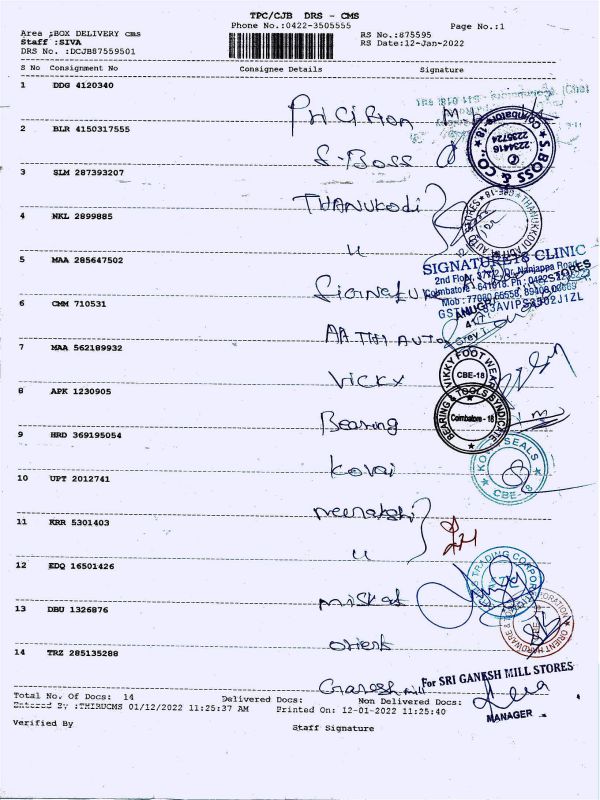 TPC/CJB DRS - CMS
Phone No.:0422-3505555 Page No.:1
Area :BOX DELIVERY cms RS No.:875595
Staff :SIVA RS Date:12-Jan-2022
DRS No. :DCJB87559501
S No Consignment No Consignee Details Signature
1 DDG 4120340
2 BLR 4150317555 S-Boss
3 SLM 287393207 THANUKODI
4 NKL 2899885 u
5 MAA 285647502
6 CMM 710531 AATHI AUTO
7 MAA 562189932 VICKY
8 APK 1230905 Bearing
9 HRD 369195054 Kovai
10 UPT 2012741 meenakshi
11 KRR 5301403 u
12 EDQ 16501426
13 DBU 1326876 orient
14 TRZ 285135288 Ganesh mill
S.BOSS & CO
Coimbatore-18
2234416
2235724
THANUKKODI AUTO STORES
CBE-18
SIGNATURE18 CLINIC
2nd Floor, Dr. Nanjappa Road,
Coimbatore - 641018. Ph : 0422
VIKKY FOOT WEAR
CBE-18
BEARING & TOOLS SYNDICATE
Coimbatore - 18
SEALS
CBE-18
TRADING CORPORATION
ORIENT HARDWARE &
For SRI GANESH MILL STORES
MANAGER
Total No. Of Docs: 14 Delivered Docs: Non Delivered Docs:
Entered By :THIRUCMS 01/12/2022 11:25:37 AM Printed On: 12-01-2022 11:25:40
Verified By Staff Signature